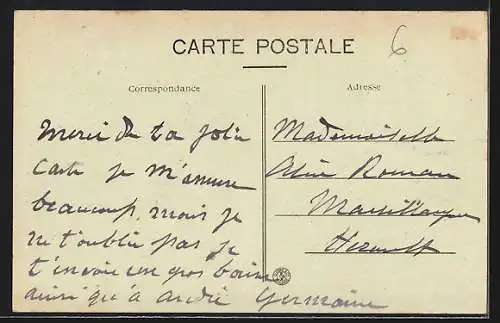 CARTE POSTALE
6
Correspondance
Adresse
Merci de ta jolie
carte je m'amuse
beaucoup, mais je
ne t'oublie pas je
t'envoie un gros baiser
ainsi qu'à andré Germaine
Mademoiselle
Roman
Marsillargues
Herault